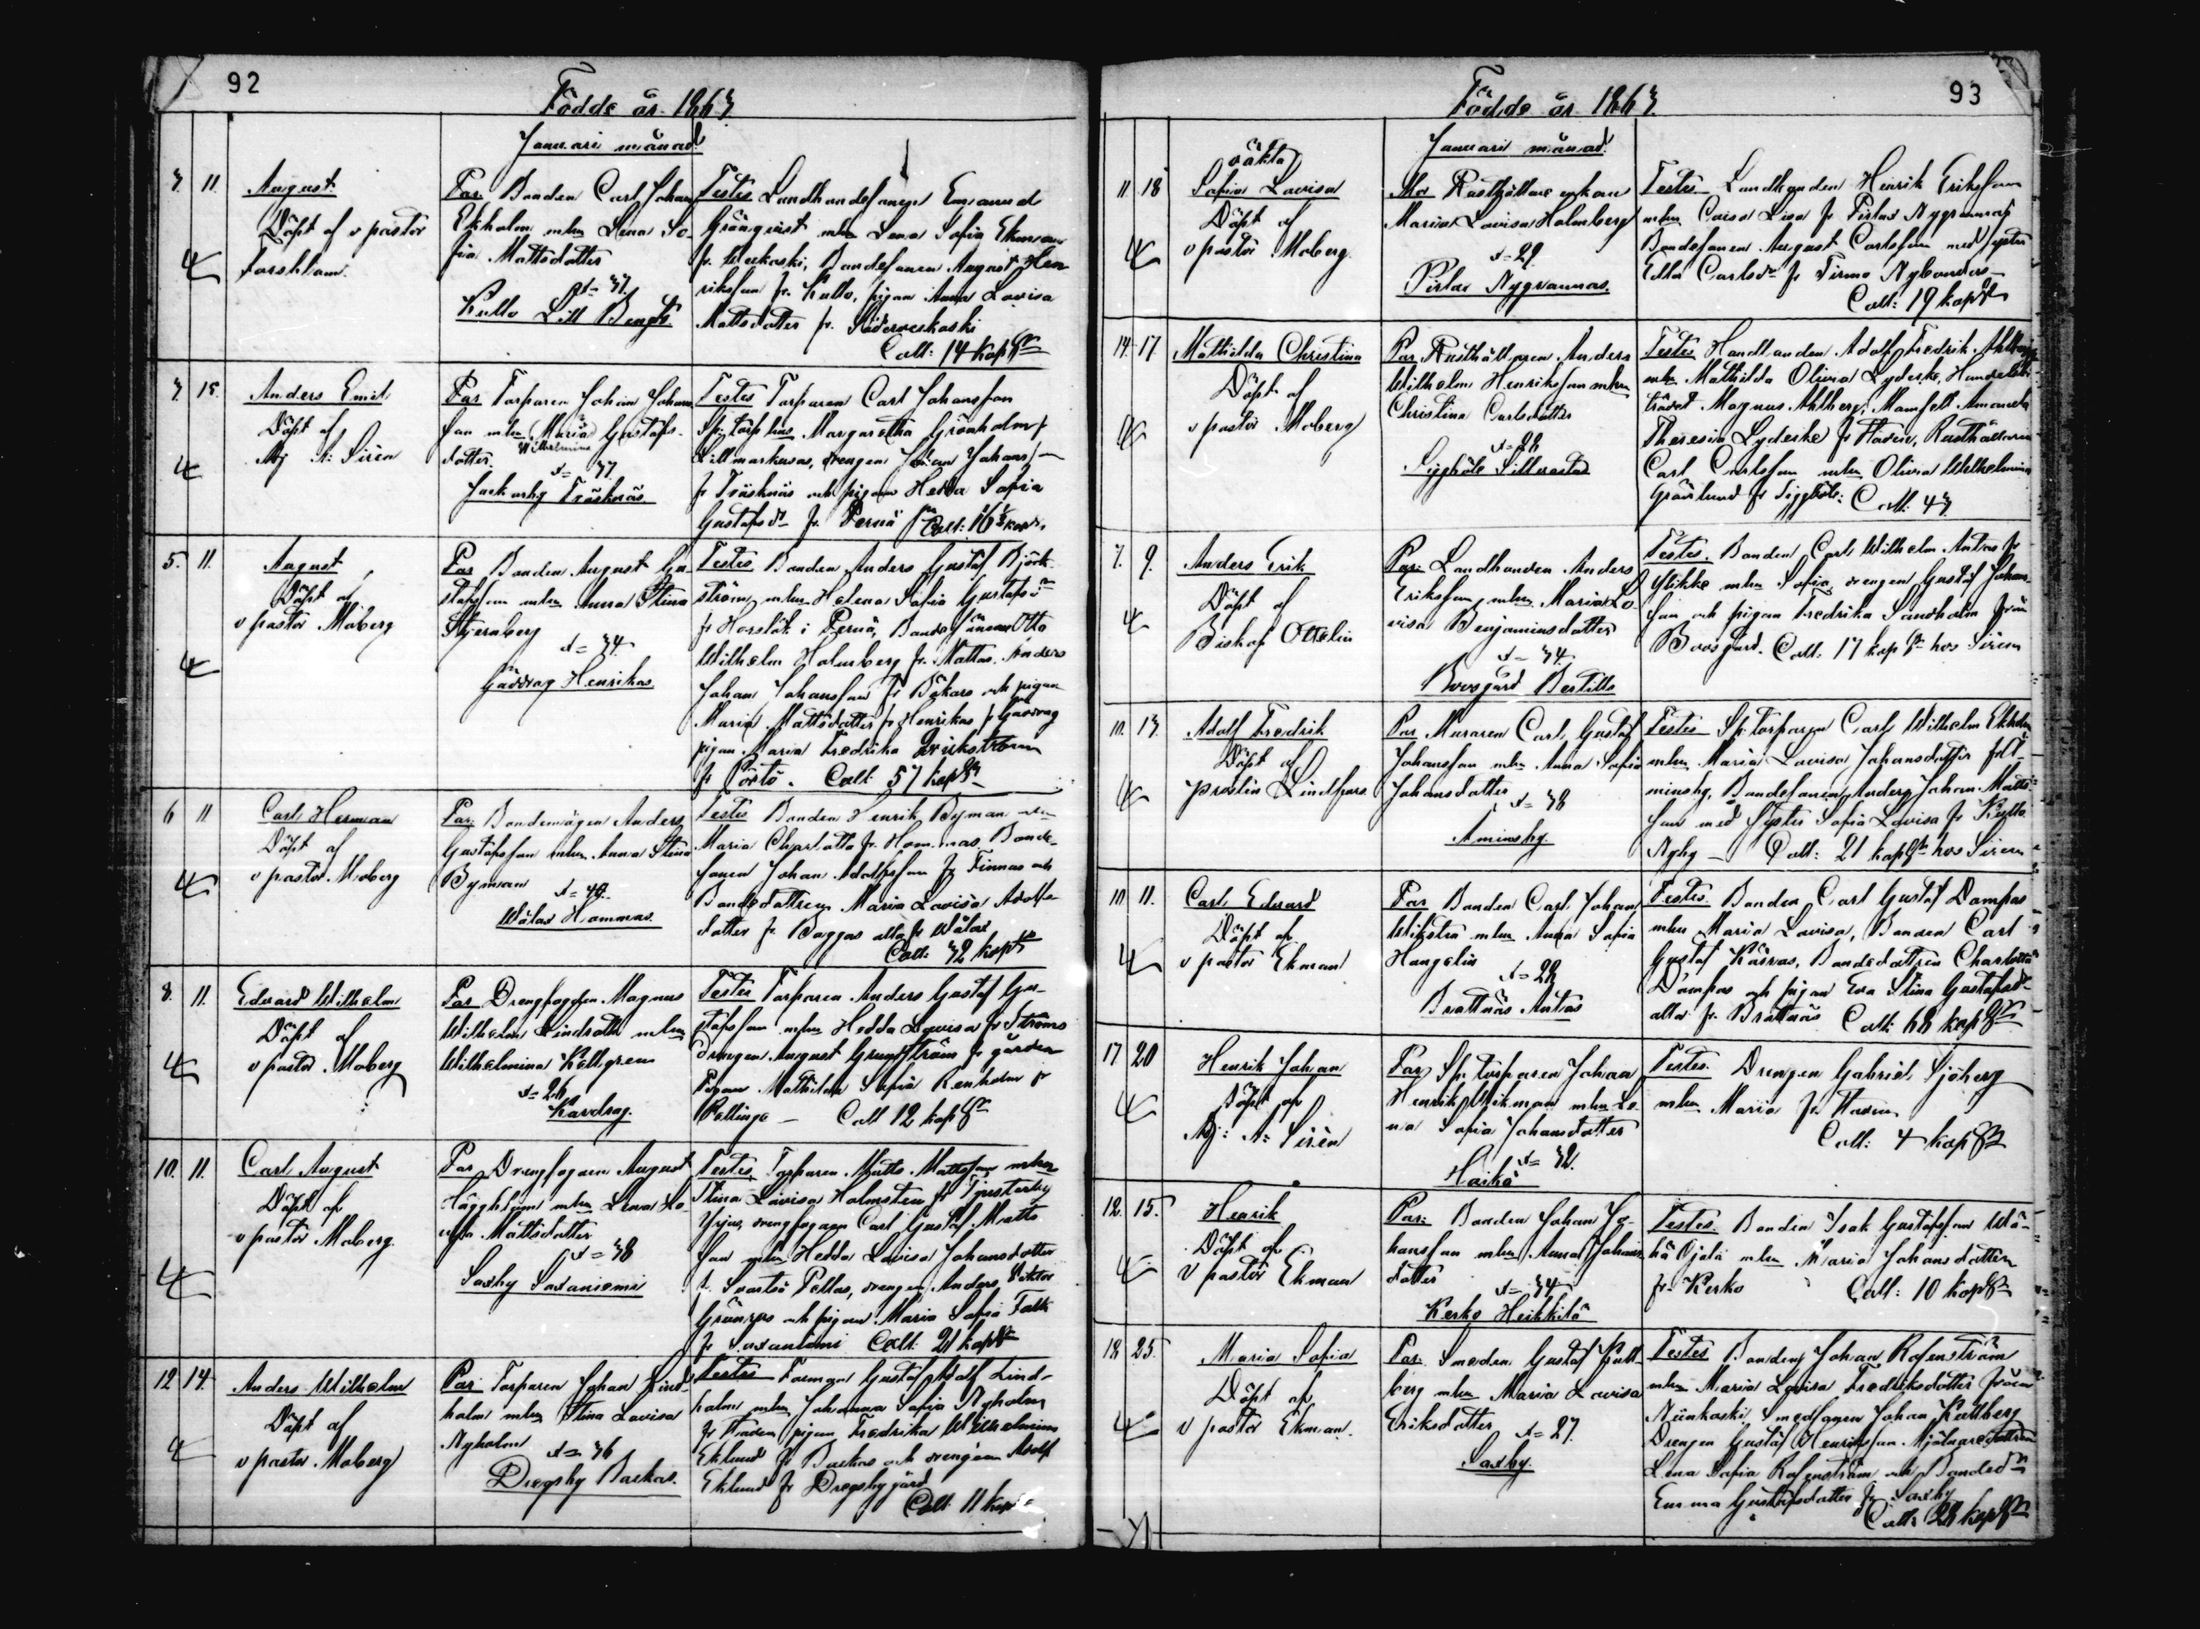 92
Födde år 1863.
Januari månad.
3. 11. August
Döpt af v pastor
Forsblom.
Par. Bonden Carl Johan
Ekholm mhu Lena So-
fia Mattsdotter
Kullo Lill Bengts.
Testes Landbondesonen Emanuel
Grönqvist mhu Lena Sofia Ekman
Bondesonen August Hen
riksson fr. Kullo, pigan Anna Lovisa
Mattsdotter fr. Söderveskoski
Coll: 14 kop
3 15. Anders Emil
Döpt af
Adj A: Sirén
Par Torparen Johan Johans
son mhu (Maria) Gustafs-
Wilhelmina
dotter.
Jackarby Träsknäs.
Testes Torparen Carl Johansson
Margaretha Grönholm
Lillmarkusas, drengen Johan Johans
fr Träsknäs och pigan Hedda Sofia
Gustafsdr fr. Pernå
5. 11. August
Döpt af
v pastor Moberg
Par Bonden August Gu-
stafsson mhu Anna Stina
Stjernberg
A= 34.
Gäddrag Henrikas.
Testes. Bonden Anders Gustaf Björk-
ström, mhu Helena Sofia Gustafsdr
i Pernå, Otto
Wilhelm Holmberg fr. Mattas. Anders
Johan Johansson fr Bökars och pigan
Maria Mattsdotter fr Henrikas fr Gäddrag
pigan Maria Fredrika
Coll: 57 kop
6 11 Carl Herman
Döpt af
v pastor Moberg
Par: Bondemågen Anders
Gustafsson mhu Anna Stina
Byman
A= 40.
Wålax Hommas.
Testes Bonden Henrik Byman
Maria Charlotta fr. Hommas. Bonde-
sonen Johan Adolfsson fr Finnas och
Bondedottren Maria Lovisa Adolfs
dotter fr Baggas alla fr Wålax
Coll: 32 kop
8. 11. Eduard Wilhelm
Döpt af
v pastor Moberg
Par Drengfogden Magnus
Wilhelm Lindroth mhu
Wilhelmina Kellgren
A= 26
Kardrag.
Testes Torparen Anders Gustaf Gu-
stafsson mhu Hedda Lovisa fr Ströms
drengen August Grundström fr gården
Pigan Mathilda Sofia Renholm fr
Pellinge — Coll 12 kop
10. 11. Carl August
Döpt af
v pastor Moberg.
Par August
Häggblom mhu Lena Lo-
visa Mattsdotter
A= 38
Saxby Saxaniemi
Testes. Torparen Matts Mattsson mhu
Stina Lovisa Holmsten fr Tjusterby
Carl Gustaf Matts
son mhu Hedda Lovisa Johansdotter
fr. Svartså Pellas, drengen Anders Viktor
Grönroos och pigan Maria Sofia Falk
fr Saxaniemi Coll: 21 kop
12 14. Anders Wilhelm
Döpt af
v pastor Moberg
Par: Torparen Johan Lind-
holm mhu Stina Lovisa
Nyholm
A= 36
Drägsby Backas.
Testes Formgn Gustaf Adolf Lind-
holm mhu Johanna Sofia Nyholm
fr Staden pigan Fredrika Wilhelmina
Eklund fr Backas och drengen Adolf
Eklund fr Drägsby gård
Coll 11 kop
93
Födde år 1863.
Januari månad.
oäkta
11 18 Sofia Lovisa
Döpt af
v pastor Moberg.
Mor Rusthållare enkan
Maria Lovisa Holmberg
A= 29.
Pirlax Nygrannas.
Testes Landbonden Henrik Eriksson
mhu Caisa Lisa fr Pirlax Nygrannas
Bondesonen August Carlsson med syster
Edla Carlsdr fr Tirmo Nybondas
Coll: 19 kop
14. 17 Mathilda Christina
Döpt af
v pastor Moberg
Par Rusthållaren Anders
Wilhelm Henriksson mhu
Christina Carlsdotter
A= 28
Siggböle Sillvastas
Testes Handlanden Adolf Fredrik Ahlberg
mhu Mathilda Olivia Lydeske, Handelsbi-
trädet Magnus Ahlberg, Mamsell Amanda
Theresia Lydeske fr Staden, Rusthållaren
Carl Carlsson mhu Olivia Wilhelmina
Grönlund fr Siggböle: Coll. 43.
7. 9. Anders Erik
Döpt af
Biskop Ottelin
Par: Landbonden Anders
Eriksson, mhu Maria Lo-
visa Benjaminsdotter
A= 34.
Boesgård Bertills
Testes. Bonden Carl Wilhelm Antas fr
Ylikke mhu Sofia, drengen Gustaf Johans-
son och pigan Fredrika Sandholm från
Boesgård. Coll. 17 kop hos Sirén
10. 13. Adolf Fredrik
Döpt af
prosten Lindfors.
Par Muraren Carl Gustaf
Johansson mhu Anna Sofia
Johansdotter
A= 38
Aminsby.
Testes Sp: torparen Carl Wilhelm Ekholm
mhu Maria Lovisa Johansdotter fr A-
minsby, Bondesonen Anders Johan Matts-
son med syster Sofia Lovisa fr Kullo
Nyby — Coll: 21 kop hos Sirén
10 11. Carl Eduard
Döpt af
v pastor Ekman
Par Bonden Carl Johan
Wikström mhu Anna Sofia
Hangelin
A= 28
Brattnäs Antas
Testes. Bonden Carl Gustaf Dampas
mhu Maria Lovisa, Bonden Carl
Gustaf Kärvas, Bondedottren Charlotta
Dampas och pigan Eva Stina Gustafsdr
alla fr. Brattnäs Coll: 68 kop
17 20 Henrik Johan
Döpt af
Adj: A: Sirén
Par Sp: torparen Johan
Henrik Wikman mhu Le-
na Sofia Johansdotter
A= 32.
Haikå
Testes. Drengen Gabriel Sjöberg
mhu Maria fr. Staden
Coll: 4 kop
12. 15. Henrik
Döpt af
v pastor Ekman
Par: Bonden Johan Jo-
hansson mhu Anna Johans
dotter
A= 34
Kerko Heikkilä
Testes. Bonden Isak Gustafsson Wä-
hä Ojala mhu Maria Johansdotter
fr. Kerko Coll: 10 kop
18 25. Maria Sofia
Döpt af
v pastor Ekman.
Par Smeden Gustaf Kull
berg mhu Maria Lovisa
Eriksdotter
A= 27.
Saxby.
Testes Bonden Johan Rosenström
mhu Maria Lovisa Fredriksdotter från
Smedsonen Johan Kullberg
Drengen Gustaf Henriksson Mjölnaredottren
Lena Sofia Rosenström och Bondedr
Emma Gustafsdotter fr. Saxby
Coll: 28 kop